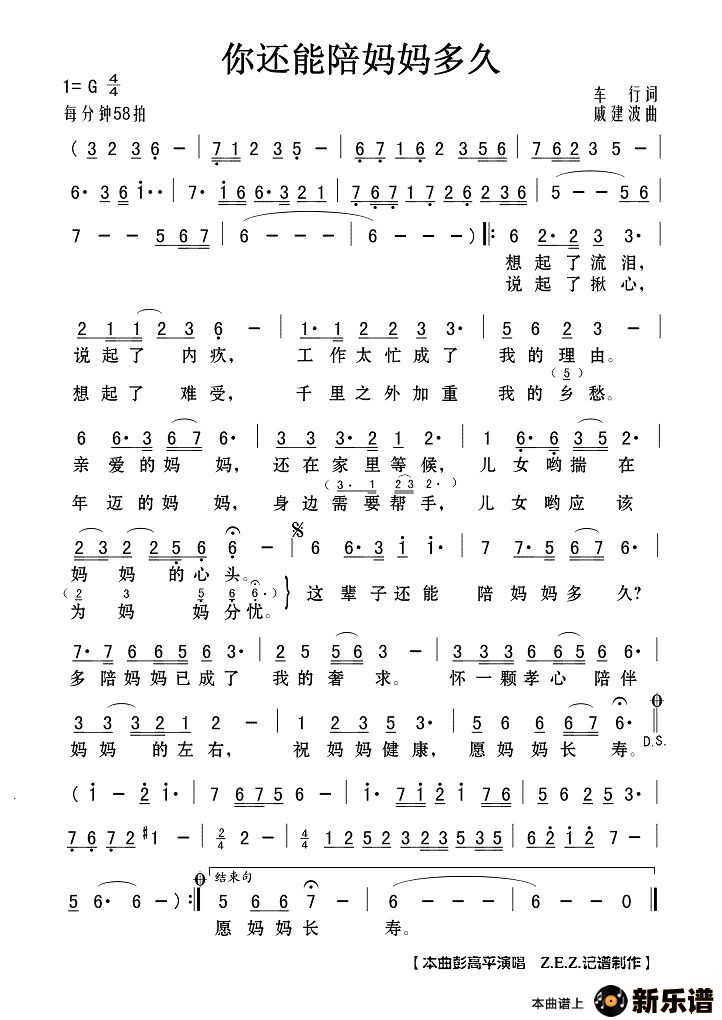 你还能陪妈妈多久
1= G 4/4
车 行词
每分钟58拍
戚建波曲
( 3 2 3 6 – | 7 1 2 3 5 – | 6 7 1 6 1 2 3 6 5 – | 7 6 7 6 2 3 5 – |
6· 3 6 i·· | 7· i 6 6· 3 3 2 1 | 7 6 7 1 7 2 6 2 3 6 | 5 – – 5 6 |
7 – – 5 6 7 | 6 – – – | 6 – – – ) ‖: 6 2· 2 3 3· |
想起了流泪，
说起了揪心，
2 1 1 2 3 6 – | 1· 1 2 2 3 3· | 5 6 2 3 – |
说起了 内疚， 工作太忙成了 我的理由。
( 5 )
想起了 难受， 千里之外加重 我的乡愁。
6 6· 3 6 7 6· | 3 3 3· 3 1 2 | 1 6· 6 3 5 2· |
亲爱的妈 妈， 还在家里等候， 儿女哟揣在
( 3· 1 2 2 3 2· )
年迈的妈 妈， 身边需要帮手， 儿女哟应该
2 3 2 2 5 6 6· – | 6 6· 3 i i· | 7 7· 5 6 7 6· |
妈 妈 的心头。
( 2 3 5 6 6· )
这辈子还能 陪妈妈多 久？
为 妈 妈分忧。
7· 7 6 6 5 6 3· | 2 5 5 6 3 – | 3 3 3 6 6 5 6 |
多陪妈妈已成了 我的奢 求。 怀一颗孝心 陪伴
3 3 3 2 1 2 – | 1 2 3 5 5 3· | 5 6 6 6 7 6· ‖
D.S.
妈妈 的左右， 祝妈妈健康， 愿妈妈长 寿。
( i – 2 i· | 7 6 7 5 6 – | i· 7 i 2 5 – | 5· 6 2 3 – |
7 6 7 2 #1 – | 2/4 2 – | 4/4 1 2 5 2 3 2 3 5 3 5 | 6 2 i 2 7 – |
结束句
5 6· 6 – ) :‖ 5 6 6 7 – | 6 – – – | 6 – – 0 ‖
愿妈妈长 寿。
【本曲彭高平演唱 Z.E.Z.记谱制作】
本曲谱上 新乐谱